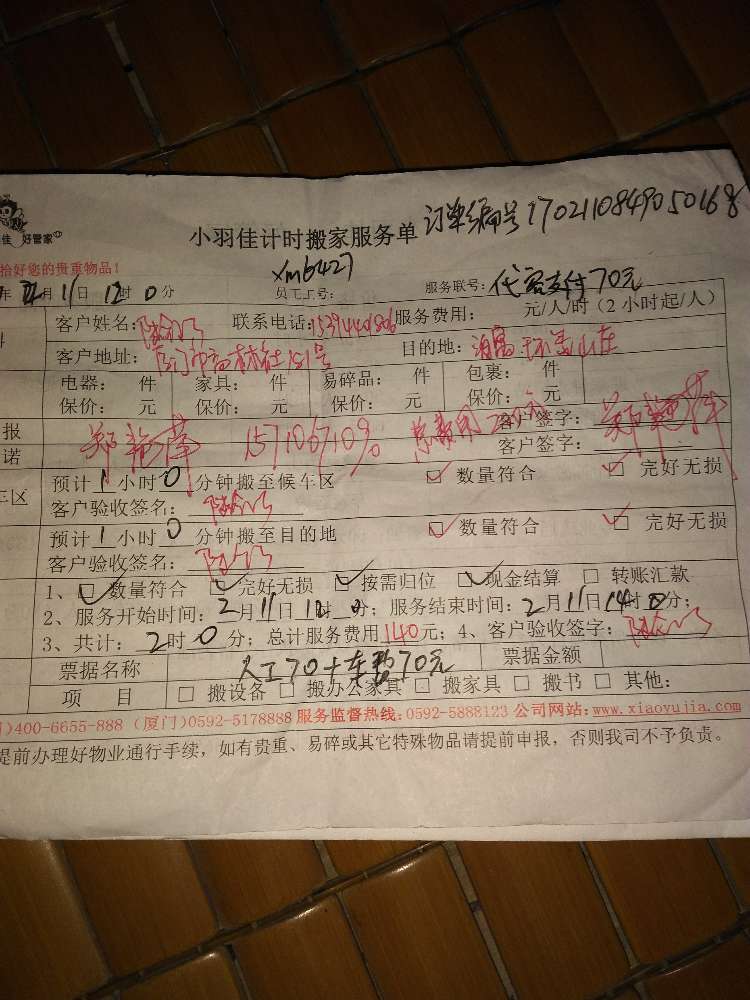 佳 好管家
小羽佳计时搬家服务单 订单编号 1702110849050168
拾好您的贵重物品！
xm6427
年 月11日 12时0分 员工号： 服务联号：代客支付70元
客户姓名： 联系电话： 服务费用： 元/人/时（2小时起/人）
客户地址： 目的地：
电器： 件 家具： 件 易碎品： 件 包裹： 件
保价： 元 保价： 元 保价： 元 保价： 元
报 客户签字：
诺 郑艳萍 客户签字：郑艳萍
车区 预计1小时0分钟搬至候车区 数量符合 完好无损
客户验收签名：
预计1小时0分钟搬至目的地 数量符合 完好无损
客户验收签名：
1、数量符合 完好无损 按需归位 现金结算 转账汇款
2、服务开始时间：2月11日12时0分；服务结束时间：2月11日14时0分；
3、共计：2时0分；总计服务费用140元；4、客户验收签字：
票据名称 人工70+车费70元 票据金额
项 目 搬设备 搬办公家具 搬家具 搬书 其他：
)400-6655-888 (厦门)0592-5178888 服务监督热线:0592-5888123 公司网站:www.xiaoyujia.com
提前办理好物业通行手续，如有贵重、易碎或其它特殊物品请提前申报，否则我司不予负责。